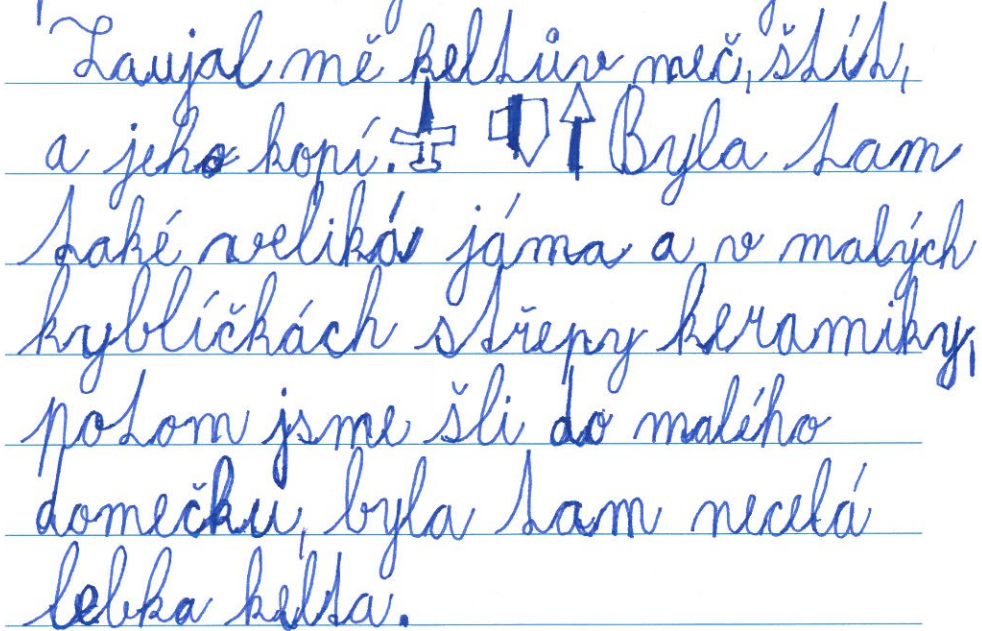 Zaujal mě keltův meč, štít,
a jeho kopí. Byla tam
také veliká jáma a v malých
kyblíčkách střepy keramiky,
potom jsme šli do malého
domečku, byla tam necelá
lebka kelta.